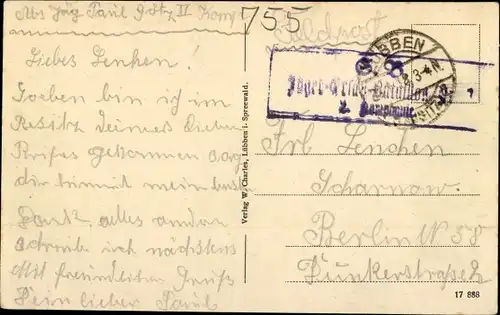 Abs. Jäg. Paul Götz II Komp.
755
Feldpost
Liebes Lenchen!
Soeben bin ich im
Besitz deines lieben
Briefes gekommen sage
dir hiermit mein besten
Dank, alles andere
schreibe ich nächstens
Mit freundlichen Gruß
Dein lieber Paul
Verlag W. Charles, Lübben i. Spreewald.
LÜBBEN
3-4N.
Jäger-Ersatz-Bataillon
2. Kompagnie
Frl Lenchen
Scharnow
Berlin N 58
Dunkerstraße
17 888